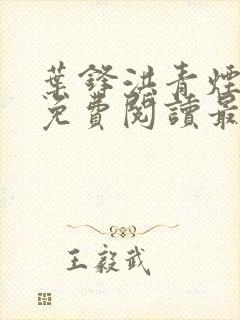 葉鋒洪青煙
免費閱讀最
王毅武